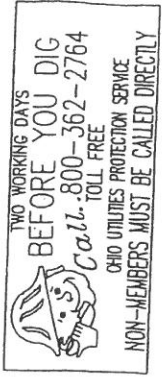 TWO WORKING DAYS
BEFORE YOU DIG
Call.:800-362-2764
TOLL FREE
OHIO UTILITIES PROTECTION SERVICE
NON-MEMBERS MUST BE CALLED DIRECTLY